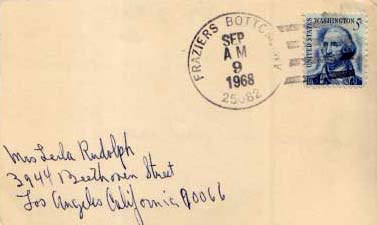 FRAZIERS BOTTOM
SEP
AM
9
1968
25082
UNITED STATES
WASHINGTON 5
Mrs Leila Rudolph
3944 Beethoven Street
Los Angeles California 90066